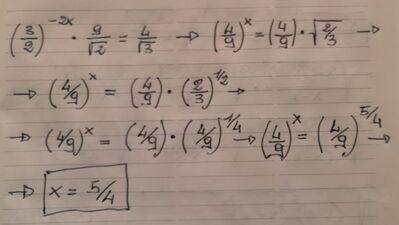 (3/2)^-2x · 9/√2 = 4/√3 → (4/9)^x = (4/9) · √2/3 →
→ (4/9)^x = (4/9) · (2/3)^1/2 →
→ (4/9)^x = (4/9) · (4/9)^1/4 → (4/9)^x = (4/9)^5/4 →
→ x = 5/4